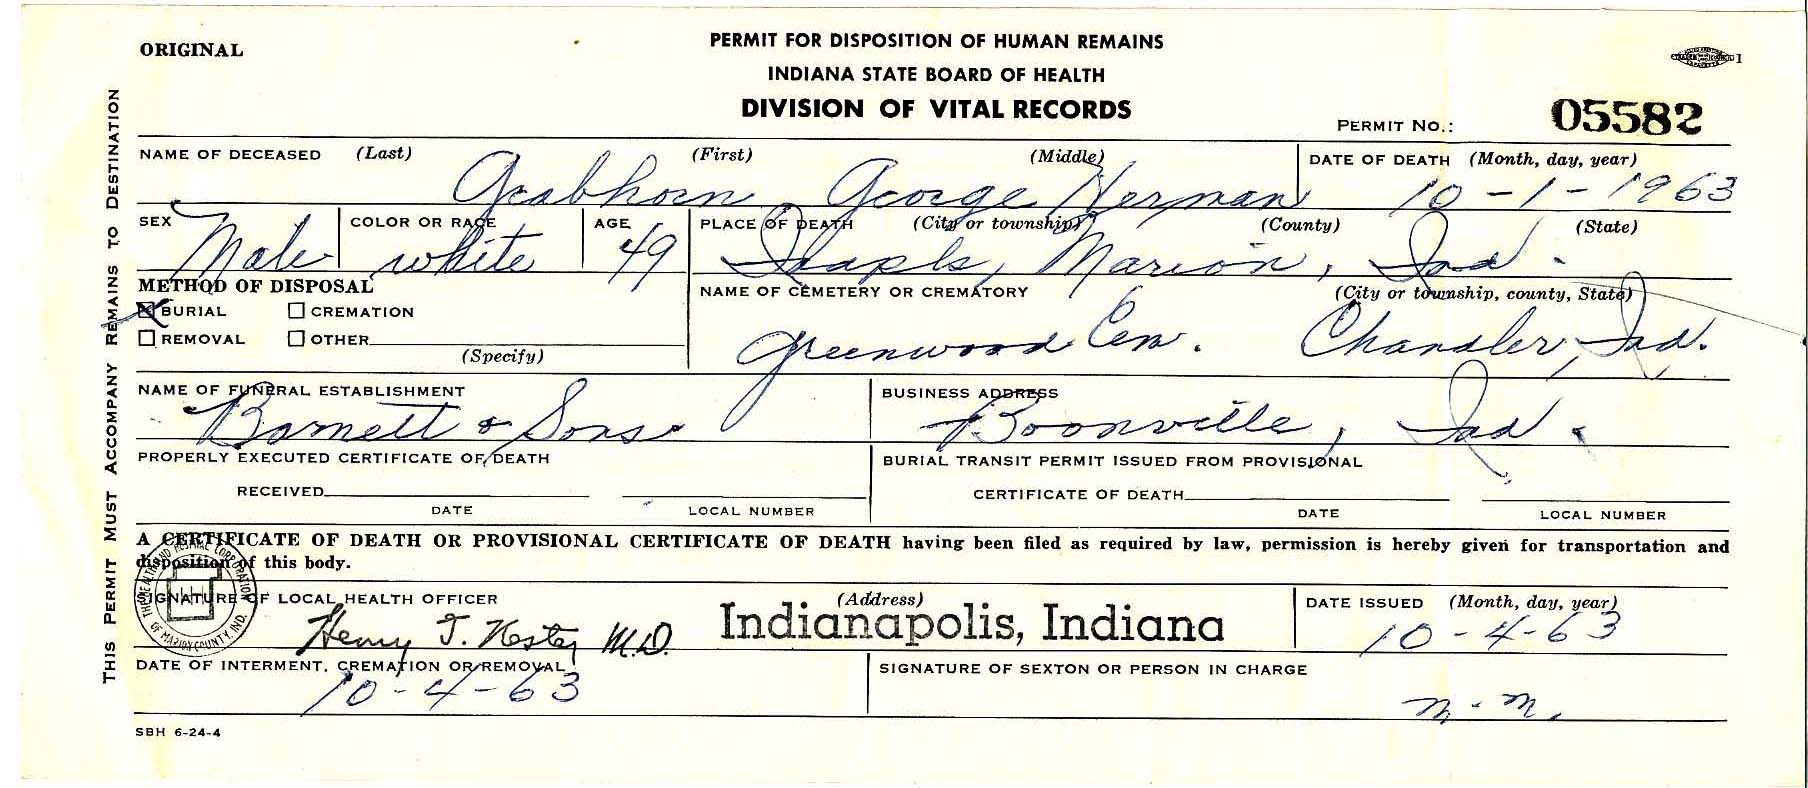 ORIGINAL
PERMIT FOR DISPOSITION OF HUMAN REMAINS
INDIANA STATE BOARD OF HEALTH
DIVISION OF VITAL RECORDS
PERMIT NO.: 05582
THIS PERMIT MUST ACCOMPANY REMAINS TO DESTINATION
NAME OF DECEASED (Last) (First) (Middle) DATE OF DEATH (Month, day, year)
Grabhorn George Herman 10-1-1963
SEX COLOR OR RACE AGE PLACE OF DEATH (City or township) (County) (State)
Male white 49 Inapls, Marion, Ind.
METHOD OF DISPOSAL NAME OF CEMETERY OR CREMATORY (City or township, county, State)
BURIAL CREMATION
REMOVAL OTHER
(Specify)
Greenwood Cem. Chandler, Ind.
NAME OF FUNERAL ESTABLISHMENT BUSINESS ADDRESS
Barnett & Sons Boonville, Ind.
PROPERLY EXECUTED CERTIFICATE OF DEATH BURIAL TRANSIT PERMIT ISSUED FROM PROVISIONAL
RECEIVED CERTIFICATE OF DEATH
DATE LOCAL NUMBER DATE LOCAL NUMBER
A CERTIFICATE OF DEATH OR PROVISIONAL CERTIFICATE OF DEATH having been filed as required by law, permission is hereby given for transportation and
disposition of this body.
THE HEALTH AND HOSPITAL CORPORATION OF MARION COUNTY, IND.
SIGNATURE OF LOCAL HEALTH OFFICER (Address) DATE ISSUED (Month, day, year)
Henry T. Nester M.D. Indianapolis, Indiana 10-4-63
DATE OF INTERMENT, CREMATION OR REMOVAL SIGNATURE OF SEXTON OR PERSON IN CHARGE
10-4-63
SBH 6-24-4